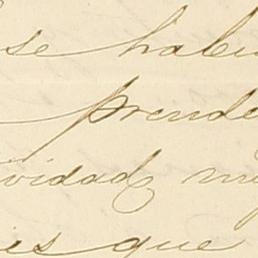 se habi
prende
vidad mi
es que